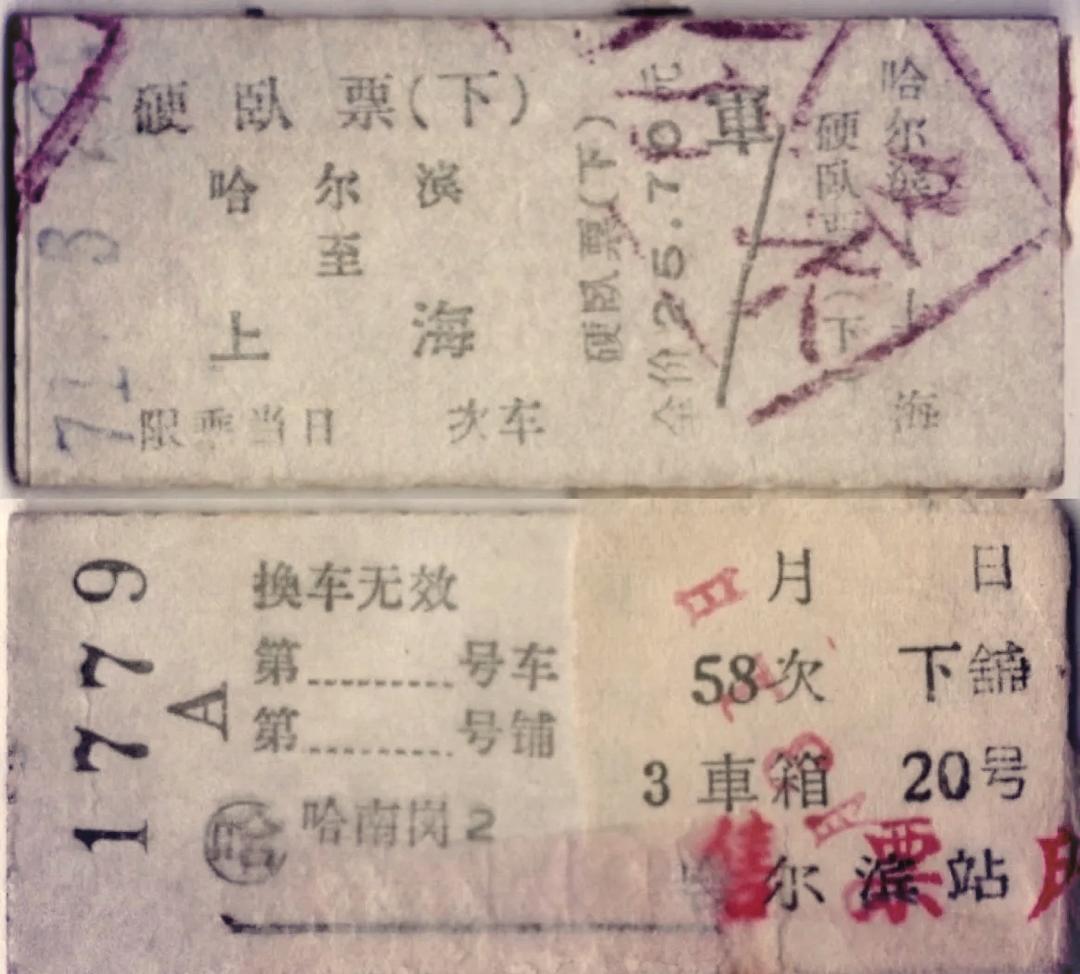 硬卧票(下)
哈尔滨
至
上海
限乘当日 次车
硬卧票(下)
全价25.70元
車
硬卧票(下)
哈尔滨
上海
71 3
1779
A
换车无效
第.........号车
第.........号铺
哈
哈南岗2
月 日
58次 下舖
3車箱 20号
尔滨站
售票